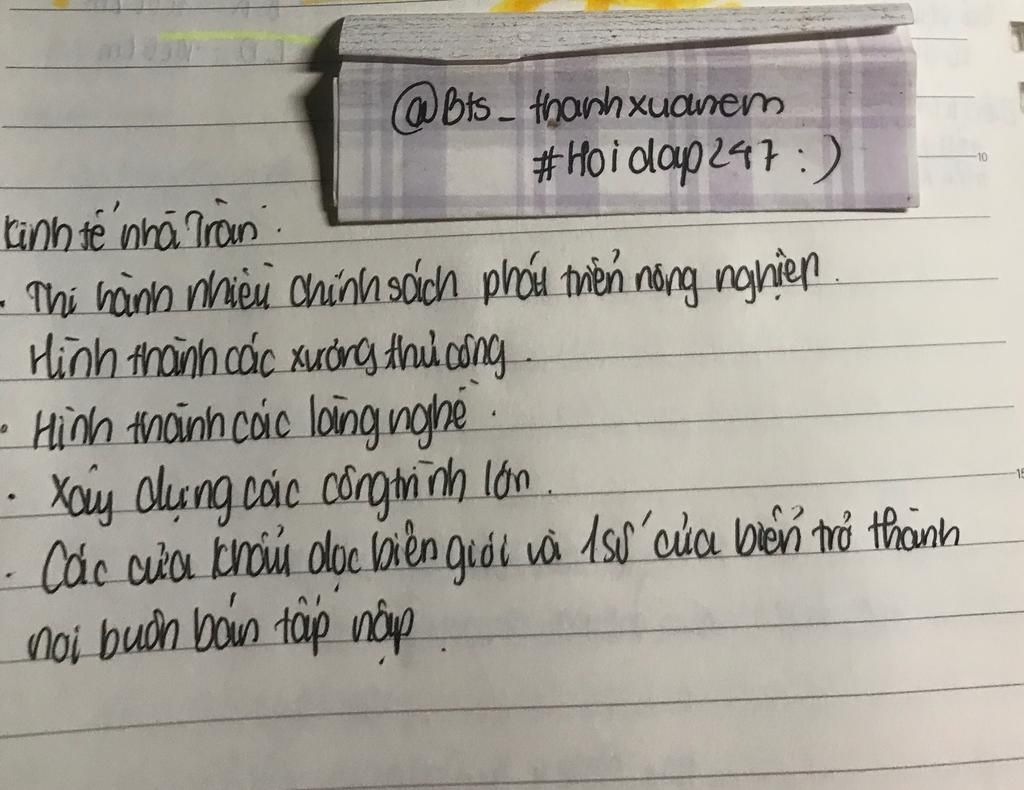 @Bts_ thanhxuanem
#Hoidap247 :)
Kinh tế nhà Trần:
. Thi hành nhiều chính sách phát triển nông nghiệp.
Hình thành các xưởng thủ công.
. Hình thành các làng nghề.
. Xây dựng các công trình lớn.
. Các cửa khẩu dọc biên giới và 1 số cửa biển trở thành
nơi buôn bán tấp nập.